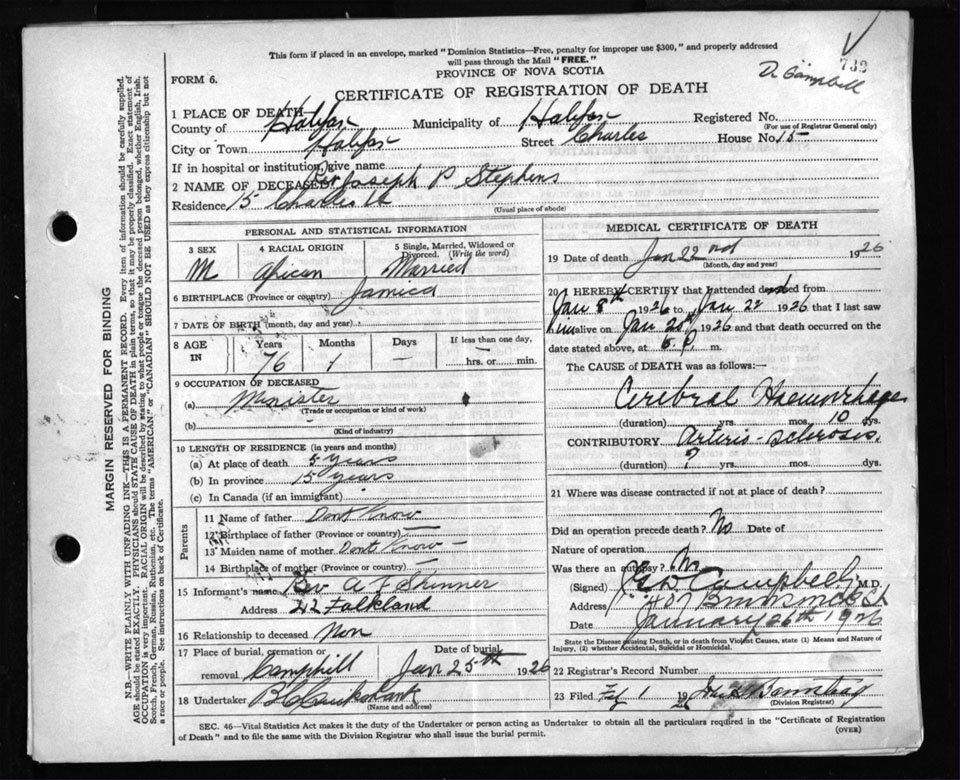 This form if placed in an envelope, marked "Dominion Statistics—Free, penalty for improper use $300," and properly addressed
will pass through the Mail "FREE."
PROVINCE OF NOVA SCOTIA
732
D. Campbell
FORM 6.
CERTIFICATE OF REGISTRATION OF DEATH
1 PLACE OF DEATH
County of Halifax Municipality of Halifax Registered No.
(For use of Registrar General only)
City or Town Halifax Street Charles House No. 15
If in hospital or institution, give name
2 NAME OF DECEASED Rev Joseph P Stephens
Residence 15 Charles St
(Usual place of abode)
PERSONAL AND STATISTICAL INFORMATION
3 SEX 4 RACIAL ORIGIN 5 Single, Married, Widowed or Divorced. (Write the word)
M African Married
6 BIRTHPLACE (Province or country) Jamica
7 DATE OF BIRTH (month, day and year)
8 AGE IN Years Months Days If less than one day,
76 1 — hrs. or min.
9 OCCUPATION OF DECEASED
(a) Minister
(Trade or occupation or kind of work)
(b)
(Kind of industry)
10 LENGTH OF RESIDENCE (in years and months)
(a) At place of death 5 years
(b) In province 15 years
(c) In Canada (if an immigrant)
Parents
11 Name of father Dont Know
12 Birthplace of father (Province or country) —
13 Maiden name of mother Dont Know —
14 Birthplace of mother (Province or country) —
15 Informant's name Rev A F Skinner
Address 22 Falkland
16 Relationship to deceased Non
17 Place of burial, cremation or removal Date of burial
Camphill Jan 25th 1926
18 Undertaker
(Name and address)
MEDICAL CERTIFICATE OF DEATH
19 Date of death Jan 22nd 1926
(Month, day and year)
20 I HEREBY CERTIFY that I attended deceased from
Jan 8th 1926 to Jan 22 1926 that I last saw
him alive on Jan 1926 and that death occurred on the
date stated above, at 6. P. m.
The CAUSE of DEATH was as follows:—
Cerebral Haemorrhage
(duration) yrs. mos. 10 dys.
CONTRIBUTORY arterio-sclerosis.
(duration) ? yrs. mos. dys.
21 Where was disease contracted if not at place of death?
Did an operation precede death? No Date of
Nature of operation
Was there an autopsy? No
(Signed) Campbell M.D.
Address 407 Brunswick St
Date January 26th 1926
State the Disease causing Death, or in death from Violent Causes, state (1) Means and Nature of
Injury, (2) whether Accidental, Suicidal or Homicidal.
22 Registrar's Record Number
23 Filed 1 19
(Division Registrar)
SEC. 46—Vital Statistics Act makes it the duty of the Undertaker or person acting as Undertaker to obtain all the particulars required in the "Certificate of Registration
of Death" and to file the same with the Division Registrar who shall issue the burial permit. (OVER)
MARGIN RESERVED FOR BINDING
N.B.—WRITE PLAINLY WITH UNFADING INK—THIS IS A PERMANENT RECORD. Every item of information should be carefully supplied.
AGE should be stated EXACTLY. PHYSICIANS should STATE CAUSE OF DEATH in plain terms, so that it may be properly classified. Exact statement of
OCCUPATION is very important. RACIAL ORIGIN will be described by stating to what people or tongue the deceased person belonged, whether English, Irish,
Scotch, French, German, Russian, Ruthenian, etc. The terms "AMERICAN" or "CANADIAN" SHOULD NOT BE USED as they express citizenship but not
a race or people. See instructions on back of Certificate.